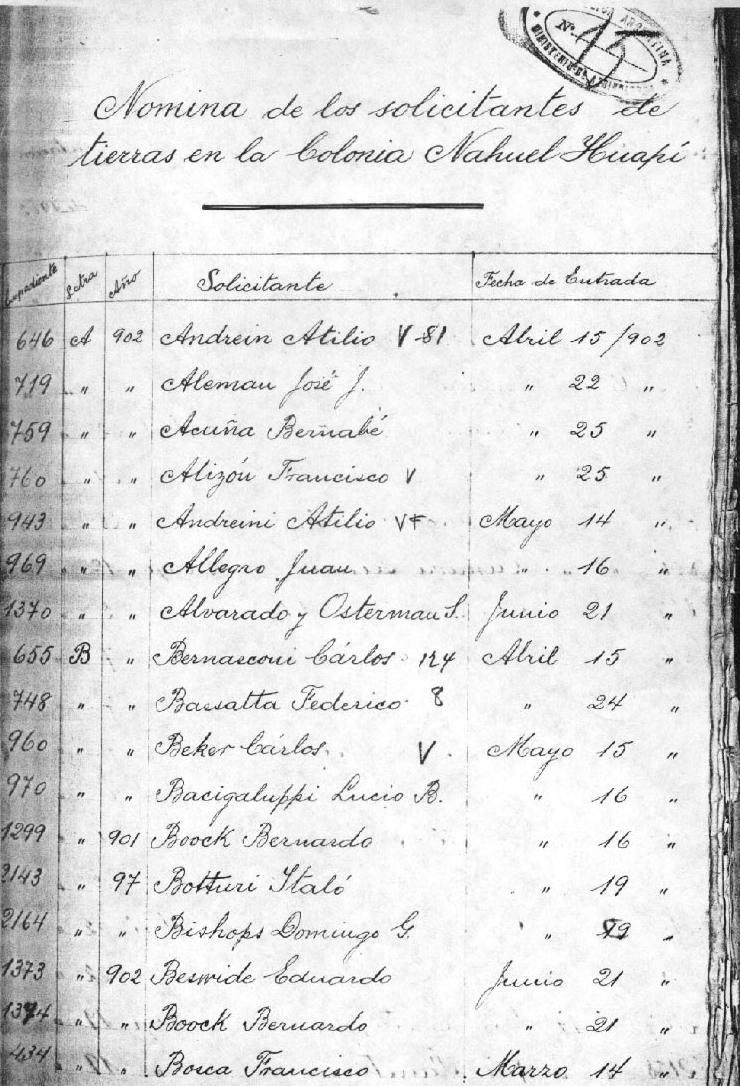 Nº 15
ARGENTINA
MINISTERIO DE
Nomina de los solicitantes de
tierras en la Colonia Nahuel Huapí
Expediente Letra Año Solicitante Fecha de Entrada
646 A 902 Andrein Atilio V 81 Abril 15/902
719 " " Aleman José J. " 22 "
759 " " Acuña Bernabé " 25 "
760 " " Alizón Francisco V " 25 "
943 " " Andreini Atilio VF Mayo 14 "
969 " " Allegro Juan " 16 "
1370 " " Alvarado y Osterman S. Junio 21 "
655 B " Bernasconi Cárlos 124 Abril 15 "
748 " " Bassatta Federico 8 " 24 "
960 " " Beker Cárlos V Mayo 15 "
970 " " Bacigaluppi Lucio B. " 16 "
1299 " 901 Boock Bernardo " 16 "
2143 " 97 Botturi Italó " 19 "
2164 " " Bishops Domingo G. " 19 "
1373 " 902 Beswide Eduardo Junio 21 "
1374 " " Boock Bernardo " 21 "
434 " " Bosca Francisco Marzo 14 "